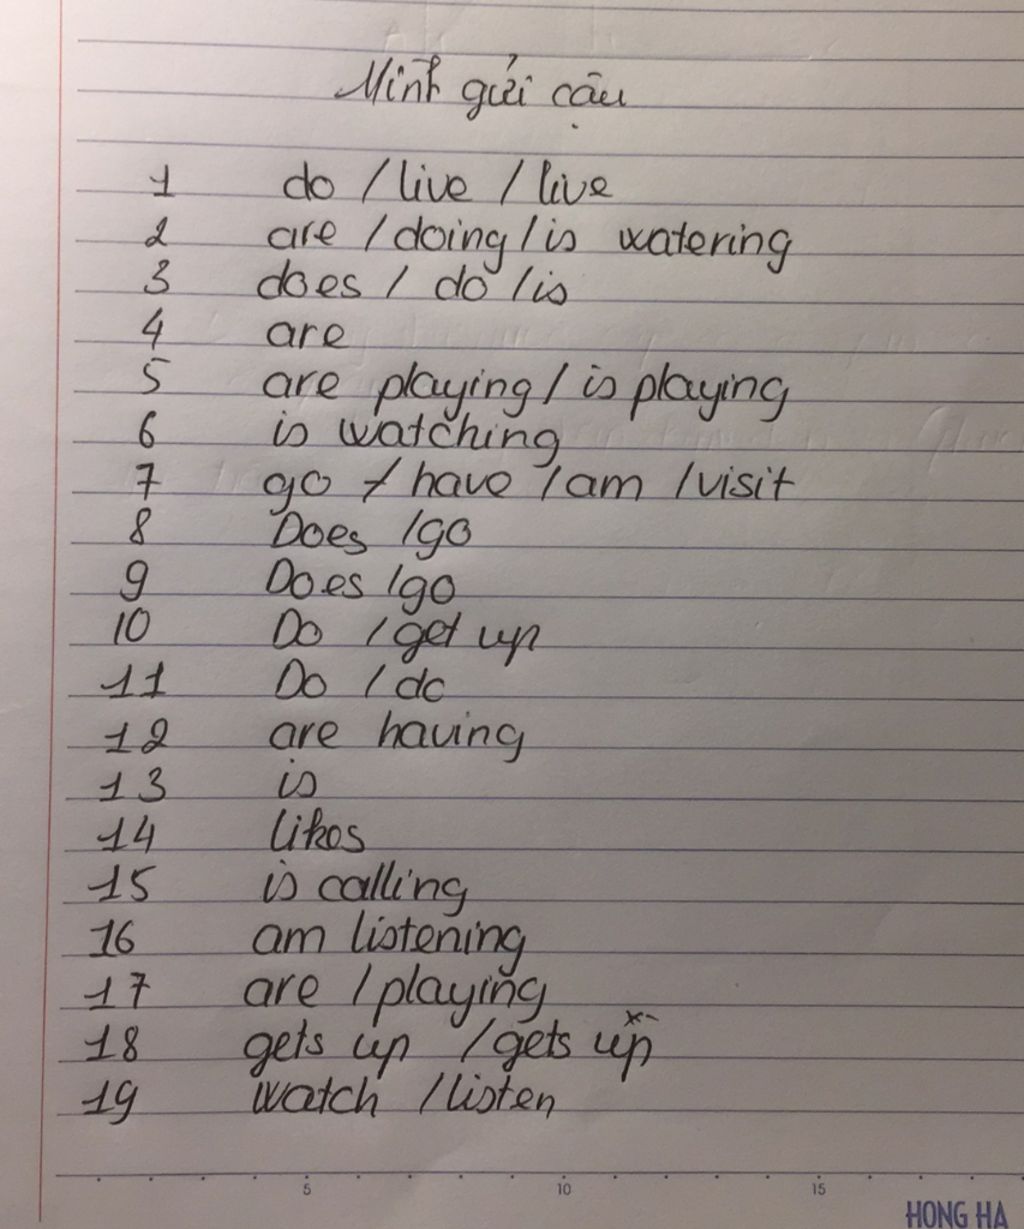 Mình gửi cậu
1 do / live / live
2 are / doing / is watering
3 does / do / is
4 are
5 are playing / is playing
6 is watching
7 go / have / am / visit
8 Does / go
9 Does / go
10 Do / get up
11 Do / do
12 are having
13 is
14 likes
15 is calling
16 am listening
17 are / playing
18 gets up / gets up
19 watch / listen
5 10 15
HONG HA